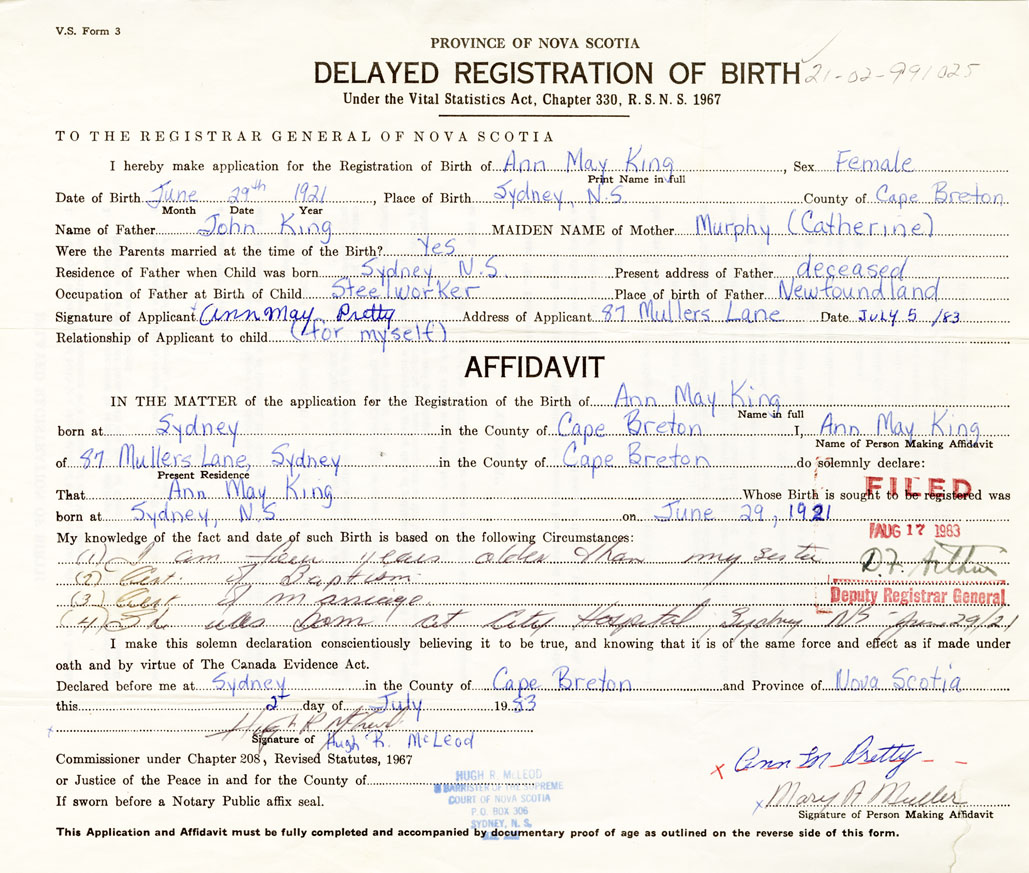 V.S. Form 3
PROVINCE OF NOVA SCOTIA
DELAYED REGISTRATION OF BIRTH 21-02-991025
Under the Vital Statistics Act, Chapter 330, R. S. N. S. 1967
TO THE REGISTRAR GENERAL OF NOVA SCOTIA
I hereby make application for the Registration of Birth of Ann May King, Sex Female
Print Name in full
Date of Birth June 29th 1921, Place of Birth Sydney, N.S County of Cape Breton
Month Date Year
Name of Father John King MAIDEN NAME of Mother Murphy (Catherine)
Were the Parents married at the time of the Birth? Yes
Residence of Father when Child was born Sydney, N.S. Present address of Father deceased
Occupation of Father at Birth of Child Steelworker Place of birth of Father Newfoundland
Signature of Applicant Ann May Pretty Address of Applicant 87 Mullers Lane Date JULY 5 /83
Relationship of Applicant to child (for myself)
AFFIDAVIT
IN THE MATTER of the application for the Registration of the Birth of Ann May King
Name in full
born at Sydney in the County of Cape Breton I, Ann May King
Name of Person Making Affidavit
of 87 Mullers Lane, Sydney in the County of Cape Breton do solemnly declare:
Present Residence
That Ann May King Whose Birth is sought to be registered was
FILED
born at Sydney, N.S on June 29, 1921
My knowledge of the fact and date of such Birth is based on the following Circumstances:
AUG 17 1983
(1) I am years older than my sister
D.F. Arthur
(2) Cert. of Baptism
(3) Cert of marriage
Deputy Registrar General
(4) She was born at City Hospital, Sydney NS June 29/21
I make this solemn declaration conscientiously believing it to be true, and knowing that it is of the same force and effect as if made under
oath and by virtue of The Canada Evidence Act.
Declared before me at Sydney in the County of Cape Breton and Province of Nova Scotia
this 2nd day of July 1983
Signature of Hugh R. McLeod
Commissioner under Chapter 208, Revised Statutes, 1967
x Ann M Pretty
or Justice of the Peace in and for the County of
HUGH R. McLEOD
BARRISTER OF THE SUPREME
COURT OF NOVA SCOTIA
P.O. BOX 306
SYDNEY, N. S.
x Mary A Muller
If sworn before a Notary Public affix seal.
Signature of Person Making Affidavit
This Application and Affidavit must be fully completed and accompanied by documentary proof of age as outlined on the reverse side of this form.